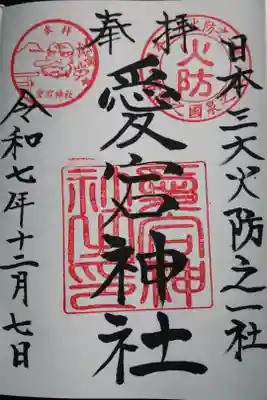 日本三大火防之一社
奉拝
愛宕神社
令和七年十二月七日
奉拝
愛宕神社
火防